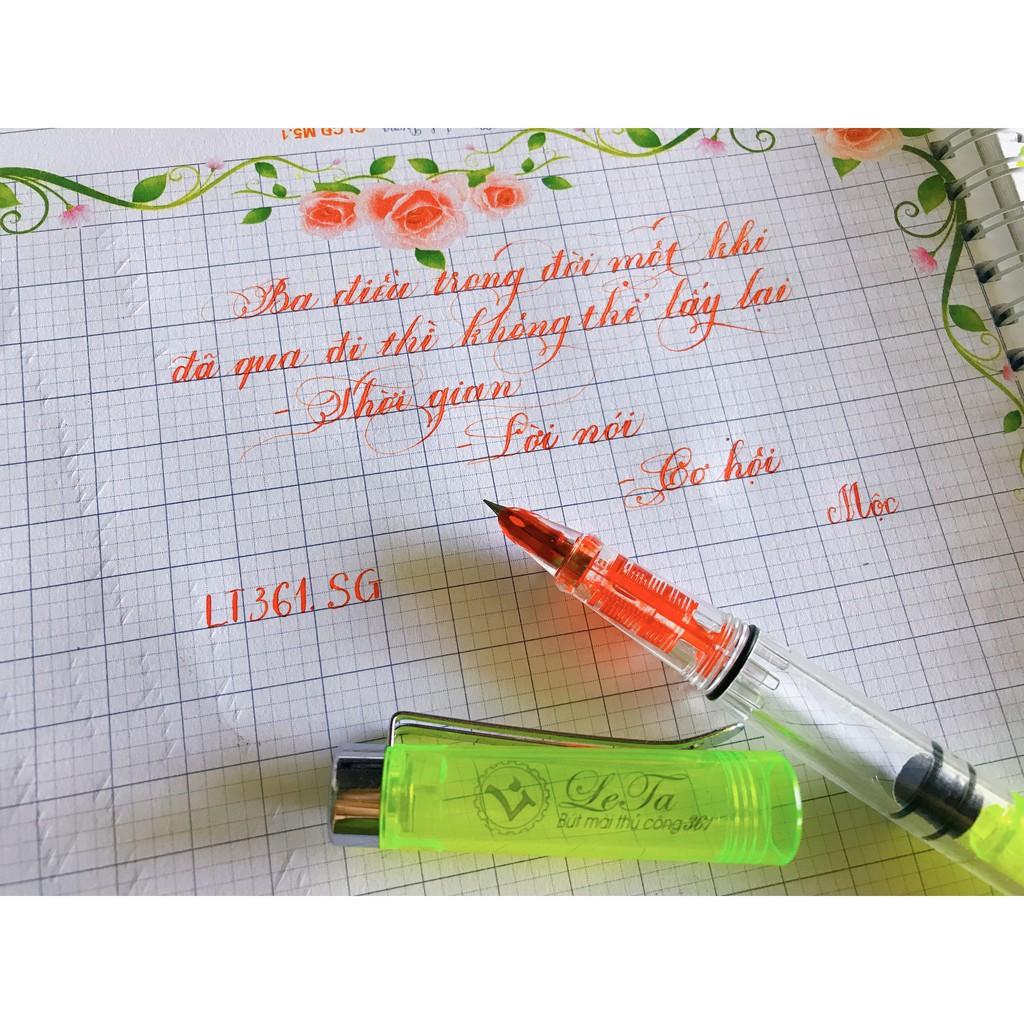 CLCD M5.1
Ba điều trong đời một khi
đã qua đi thì không thể lấy lại
- Thời gian
- Lời nói
- Cơ hội
Mộc
LT361.SG
LeTa
Bút mài thủ công 361